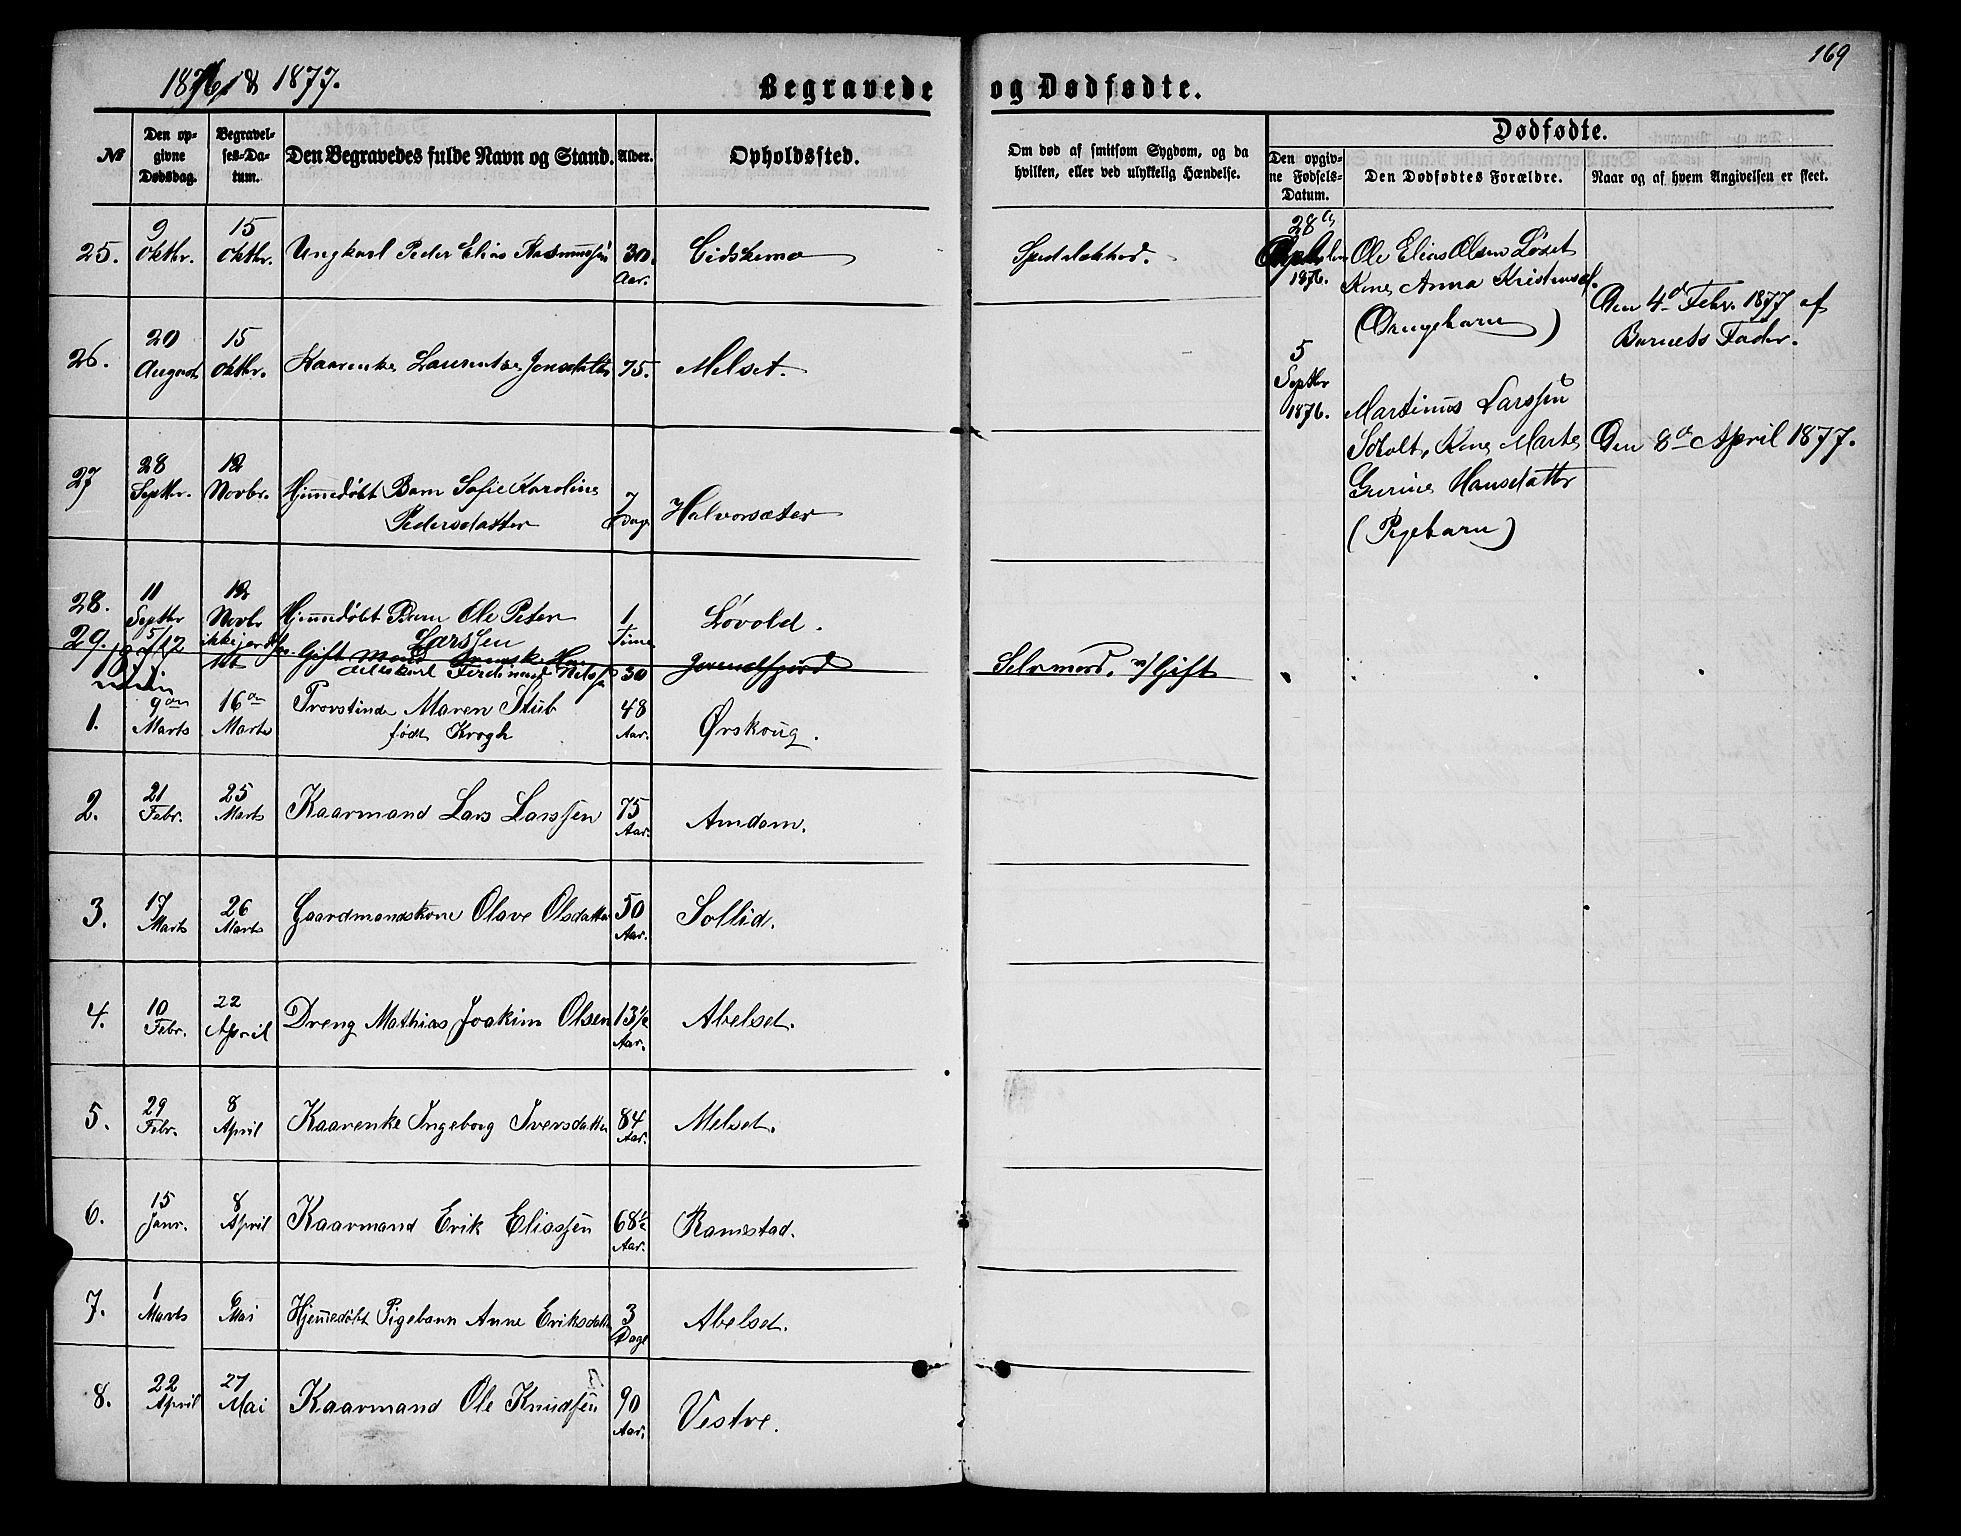 169
1876 & 1877.
Begravede og Dødfødte.
№
Den op-
givne
Dødsdag.
Begravel-
ses-Da-
tum.
Den Begravedes fulde Navn og Stand.
Alder.
Opholdssted.
Om død af smitsom Sygdom, og da
hvilken, eller ved ulykkelig Hændelse.
Dødfødte.
Den opgiv-
ne Fødsels-
Datum.
Den Dødfødtes Forældre.
Naar og af hvem Angivelsen er skeet.
25. 9 Oktbr. 15 Oktbr. Ungkarl Peder Elias Rasmussen 30 Aar. Eidskemo Spedalskhed.
26. 20 August 15 Oktbr. Kaarenke Laurentse Jonsdatter 75. Melset.
27 28 Septbr. 12 Novbr. Hjemmedøbt Barn Sofie Karoline
Pedersdatter 7 Dage Halvorsæter
28. 11 Septbr 12 Novbr Hjemmedøbt Barn Ole Peter
Larssen 1 Time Løvold.
29. 5/12 ikke jordf. Gift Mand Svenske
Ferdinand Nels 30 Selvmord. v/ Gift
1877
1. 9de Marts 16de Marts Provstinde Maren Stub
født Krogh 48 Aar. Ørskoug.
2. 21 Febr. 25 Marts Kaarmand Lars Larssen 75 Aar. Amdam.
3. 17 Marts 26 Marts Gaardmandskone Olave Olsdatter 50 Aar. Sollid.
4. 10 Febr. 22 April Dreng Mathias Joakim Olsen 13½ Aar. Abelset.
5. 29 Febr. 8 April Kaarenke Ingeborg Iversdatter 84 Aar. Melset.
6. 15 Janr. 8 April Kaarmand Erik Eliassen 68½ Aar. Ramstad.
7. 1 Marts 6 Mai Hjemmedøbt Pigebarn Anne Eriksdatter 3 Dage Abelset.
8. 22 April 27 Mai Kaarmand Ole Knudsen 90 Aar. Vestre.
28de
1876.
Ole Elias Olsen Løset
Kone Anna Kristensd.
(Drengebarn)
Den 4de Febr. 1877 af
Barnets Fader.
5
Septbr
1876.
Martinus Larssen
Soholt, Kone Marte
Gurine Hansdatter
(Pigebarn)
Den 8de April 1877.